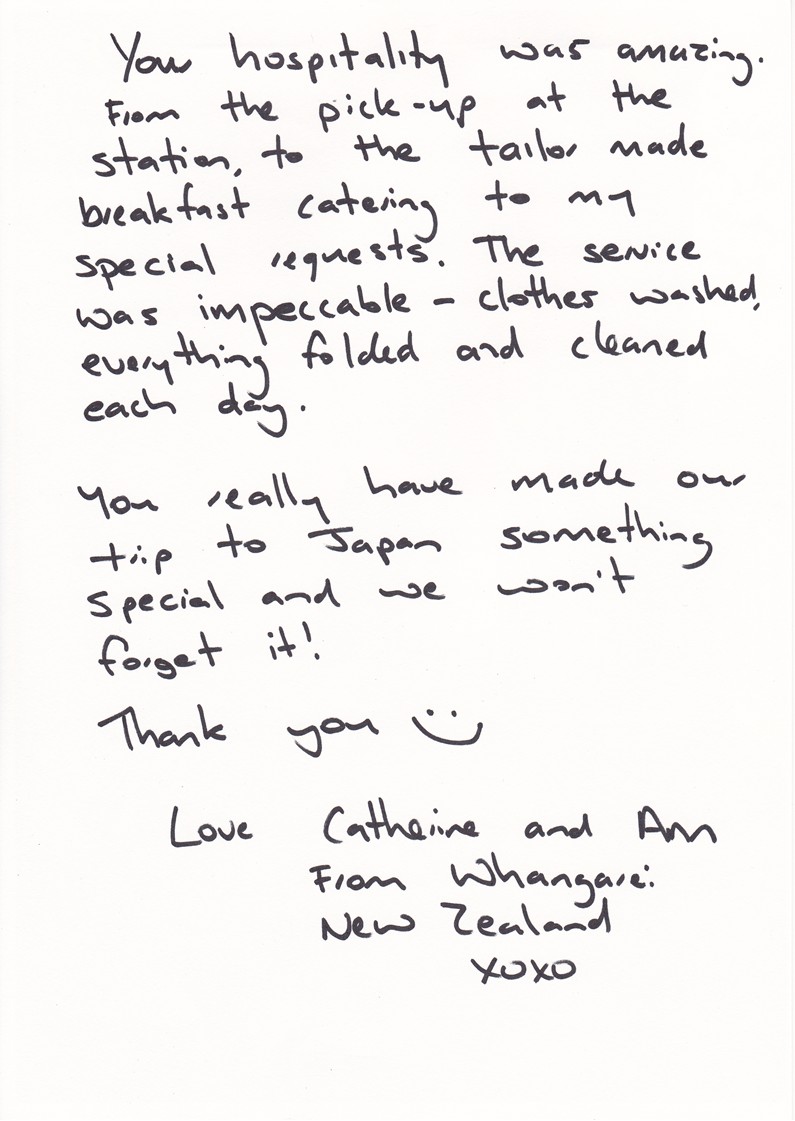 Your hospitality was amazing.
From the pick-up at the
station, to the tailor made
breakfast catering to my
special requests. The service
was impeccable - clothes washed,
everything folded and cleaned
each day.
You really have made our
trip to Japan something
special and we won't
forget it!
Thank you :)
Love Catherine and Ann
From Whangarei
New Zealand
xoxo